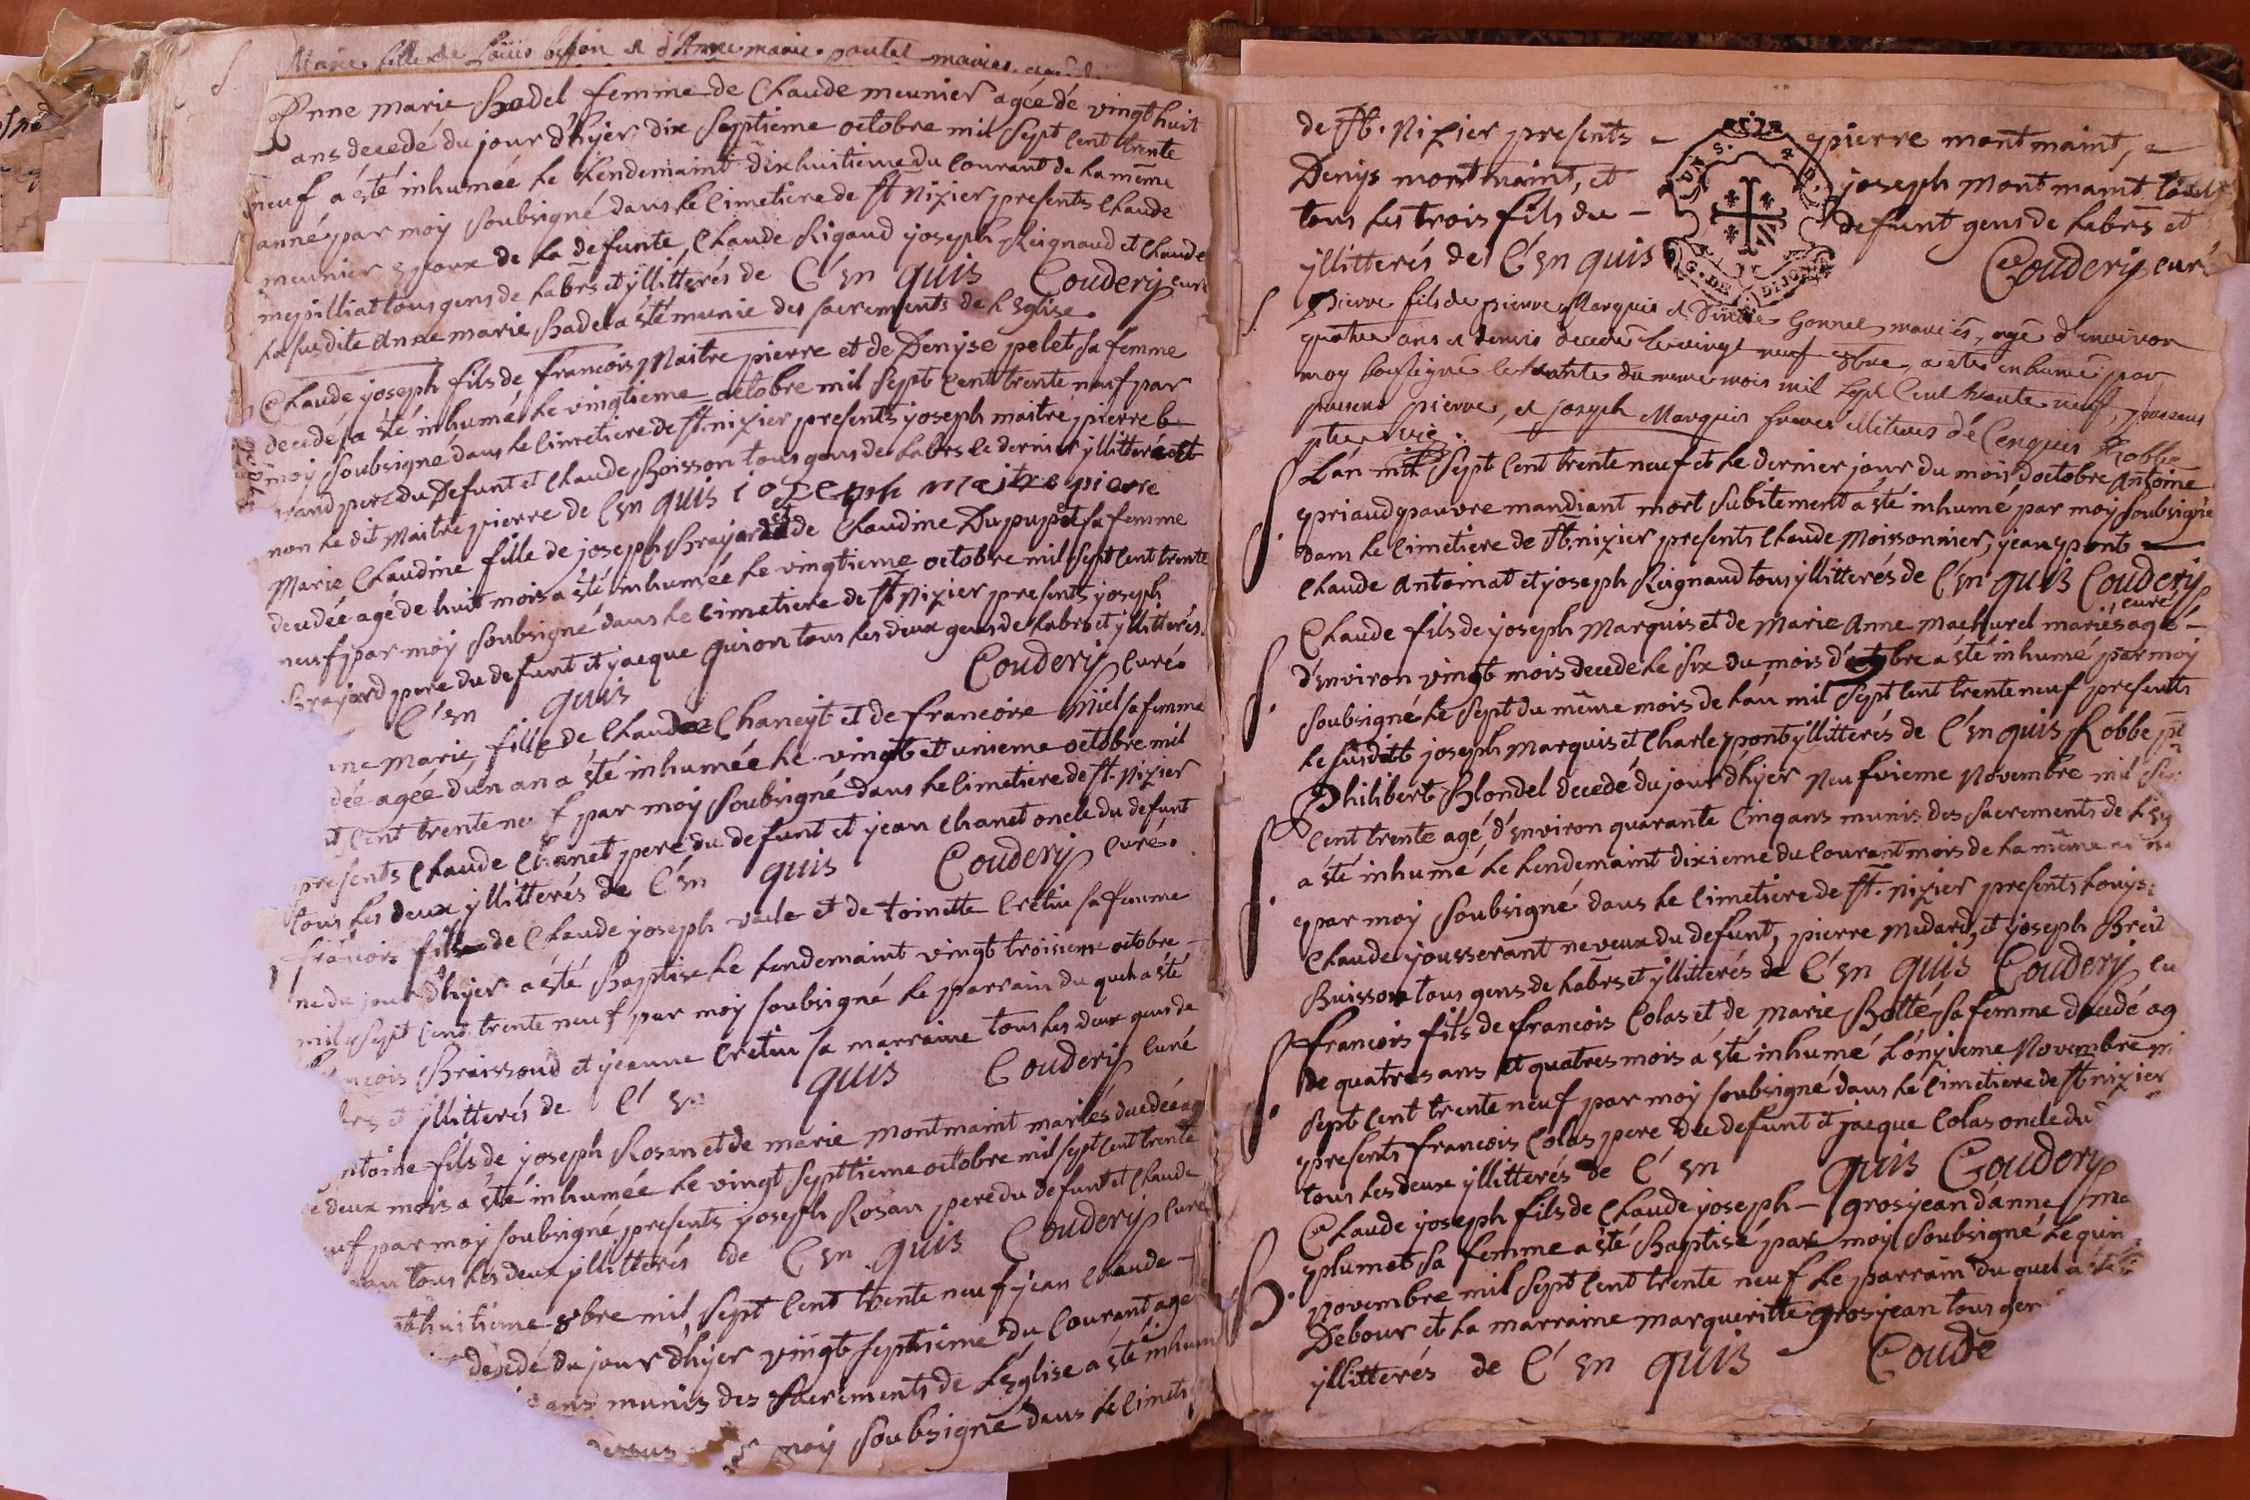 Marie fille de Loüis
Anne marie Badel femme de Claude meunier agée de vingt huit
ans decedé du jour d'hyer dix septieme octobre mil sept cent trente
neuf a été inhumée le lendemaint dixhuitieme du courant de la même
anné par moy soubsigné dans le cimetiere de st nizier presents claude
meunier epoux de la defunte, claude Rigaud joseph Reignaud et claude
mepilliat tous gens de labrs et yllitterés de C'en quis Coudery curé
la susdite anne marie Badel a été munie des sacrements de l'Eglise.
Claude joseph fils de francois Maitre pierre et de Denyse pelet sa femme
decedé a été inhumé le vingtieme octobre mil sept cent trente neuf par
moy soubsigné dans le cimetiere de st. nizier presents joseph maitre pierre le
grand pere du Defunt et claude Boisson tous gens de labrs le dernier yllitteré et
non le dit Maitre pierre de C'en quis ioseph maitre pierre
Marie claudine fille de joseph Brayard et de claudine Dupupet sa femme
decedée agé de huit mois a été inhumée le vingtieme octobre mil sept cent trente
neuf par moy soubsigné dans le cimetiere de st Nizier presents joseph
Brayard pere du defunt et jacque guion tous les deux gens de labrs et yllitterés.
C'en quis Coudery curé.
marie, fille de claude Chaneyt et de francoise Miel sa femme
dée agée d'un an a été inhumée le vingt et unieme octobre mil
cent trente neuf par moy soubsigné dans le cimetiere de st. Nizier
presents claude Chanet pere du defunt et jean chanet oncle du defunt
tous les deux yllitterés de C'en quis Coudery curé.
françois fils de claude joseph vale et de toinette cretin sa femme
né du jour d'hyer a été Baptisé le lendemaint vingt troisieme octobre –
mil sept cent trente neuf par moy soubsigné le parrain du quel a été
Braissoud et jeanne cretin sa marraine tous les deux gens de
et yllitterés de C'en quis Coudery curé
antoine fils de joseph Rosan et de marie montmaint mariés decedée
deux mois a été inhumée le vingt septieme octobre mil sept cent trente
neuf par moy soubsigné, presents joseph Rosan pere du defunt et claude
tous les deux yllitterés de C'en quis Coudery curé
huitieme 8bre mil sept cent trente neuf jean claude –
decedé du jour d'hyer vingt septieme du courant agé
ans munis des sacrements de l'Eglise a été inhum
moy soubsigné dans le cimeti
de st. Nizier presents – pierre montmaint, –
Denys montmaint, et joseph Montmaint
tous les trois fils du – defunt gens de labrs et
yllitterés de C'en quis Coudery curé
G. DE DIJON
Pierre fils de pierre Marquis et Gonnel mariés, agé d'environ
quatre ans et demis decedé le vingt neuf 8bre, a été inhumé par
moy soussigné le trente du meme mois mil sept cent trente neuf, presens
pierre, et joseph Marquis freres illiteres de C'enquis Robbe
L'an mil sept cent trente neuf et le dernier jour du mois d'octobre Antoine
priaud pauvre mandiant mort subitement a été inhumé par moy soubsigné
dans le cimetiere de st. nizier presents claude Moissonnier, jean ponts
claude antoinat et joseph Reignaud tous yllitterés de C'en quis Coudery
curé
Claude fils de joseph Marquis et de Marie Anne machurel mariés agé –
d'environ vingt mois decede le six du mois d' a été inhumé par moy
soubsigné le sept du même mois de l'an mil sept cent trente neuf presents
le susditt joseph marquis et charle pont yllitterés de C'en quis Robbe
Philibert Blondel decedé du jour d'hyer Neufvieme Novembre mil
cent trente agé, d'environ quarante cinq ans munis des sacrements de l'eg
a été inhumé le lendemaint dixieme du courant mois de la même
par moy soubsigné dans le cimetiere de st. nizier presents Louys
claude jousserant neveux du defunt, pierre medard, et joseph Breit
Buisson tous gens de labrs et yllitterés de C'en quis Coudery cu
francois fils de francois Colas et de Marie Botté, sa femme decedé ag
de quatres ans et quatres mois a été inhumé l'onzieme Novembre
sept cent trente neuf par moy soubsigné dans le cimetiere de st nizier
presents francois Colas pere du defunt et jacque Colas oncle du
tous les deux yllitterés de C'en quis Coudery
Claude joseph fils de claude joseph – grosjean d'anne ma
plumet sa femme a été Baptisé par moy soubsigné le quin
novembre mil sept cent trente neuf le parrain du quel a été
Debour et la marraine margueritte grosjean tous gen
yllitterés de C'en quis Coude